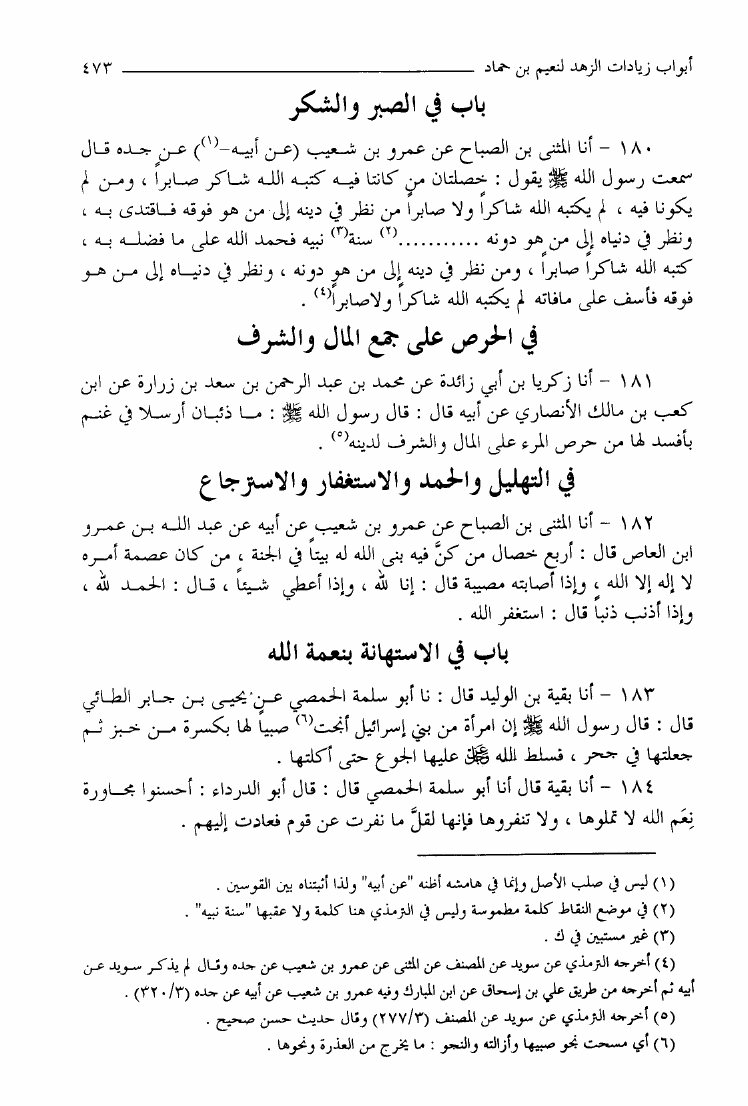 أبواب زيادات الزهد لنعيم بن حماد ٤٧٣
باب في الصبر والشكر
١٨٠ – أنا المثنى بن الصباح عن عمرو بن شعيب (عن أبيه–(١)) عن جده قال
سمعت رسول الله ﷺ يقول : خصلتان من كانتا فيه كتبه الله شاكر صابراً ، ومن لم
يكونا فيه ، لم يكتبه الله شاكراً ولا صابراً من نظر في دينه إلى من هو فوقه فاقتدى به ،
ونظر في دنياه إلى من هو دونه ...........(٢) سنة(٣) نبيه فحمد الله على ما فضله به ،
كتبه الله شاكراً صابراً ، ومن نظر في دينه إلى من هو دونه ، ونظر في دنياه إلى من هو
فوقه فأسف على مافاته لم يكتبه الله شاكراً ولاصابراً(٤) .
في الحرص على جمع المال والشرف
١٨١ – أنا زكريا بن أبي زائدة عن محمد بن عبد الرحمن بن سعد بن زرارة عن ابن
كعب بن مالك الأنصاري عن أبيه قال : قال رسول الله ﷺ : ما ذئبان أرسلا في غنم
بأفسد لها من حرص المرء على المال والشرف لدينه(٥) .
في التهليل والحمد والاستغفار والاسترجاع
١٨٢ – أنا المثنى بن الصباح عن عمرو بن شعيب عن أبيه عن عبد الله بن عمرو
ابن العاص قال : أربع خصال من كنَّ فيه بنى الله له بيتاً في الجنة ، من كان عصمة أمره
لا إله إلا الله ، وإذا أصابته مصيبة قال : إنا لله ، وإذا أعطي شيئاً ، قال : الحمد لله ،
وإذا أذنب ذنباً قال : استغفر الله .
باب في الاستهانة بنعمة الله
١٨٣ – أنا بقية بن الوليد قال : نا أبو سلمة الحمصي عن يحيى بن جابر الطائي
قال : قال رسول الله ﷺ إن امرأة من بني إسرائيل أنجت(٦) صبياً لها بكسرة من خبز ثم
جعلتها في جحر ، فسلط الله ﷻ عليها الجوع حتى أكلتها .
١٨٤ – أنا بقية قال أنا أبو سلمة الحمصي قال : قال أبو الدرداء : أحسنوا مجاورة
نِعَم الله لا تملوها ، ولا تنفروها فإنها لقلَّ ما نفرت عن قوم فعادت إليهم .
(١) ليس في صلب الأصل وإنما في هامشه أظنه "عن أبيه" ولذا أثبتناه بين القوسين .
(٢) في موضع النقاط كلمة مطموسة وليس في الترمذي هنا كلمة ولا عقبها "سنة نبيه" .
(٣) غير مستبين في ك .
(٤) أخرجه الترمذي عن سويد عن المصنف عن المثنى عن عمرو بن شعيب عن جده وقال لم يذكر سويد عن
أبيه ثم أخرجه من طريق علي بن إسحاق عن ابن المبارك وفيه عمرو بن شعيب عن أبيه عن جده (٣٢٠/٣) .
(٥) أخرجه الترمذي عن سويد عن المصنف (٢٧٧/٣) وقال حديث حسن صحيح .
(٦) أي مسحت نجو صبيها وأزالته والنجو : ما يخرج من العذرة ونحوها .